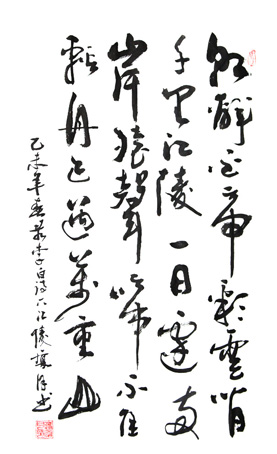 朝辭白帝彩雲間
千里江陵一日還兩
岸猿聲啼不住
輕舟已過萬重山
乙未年春录李白诗下江陵书